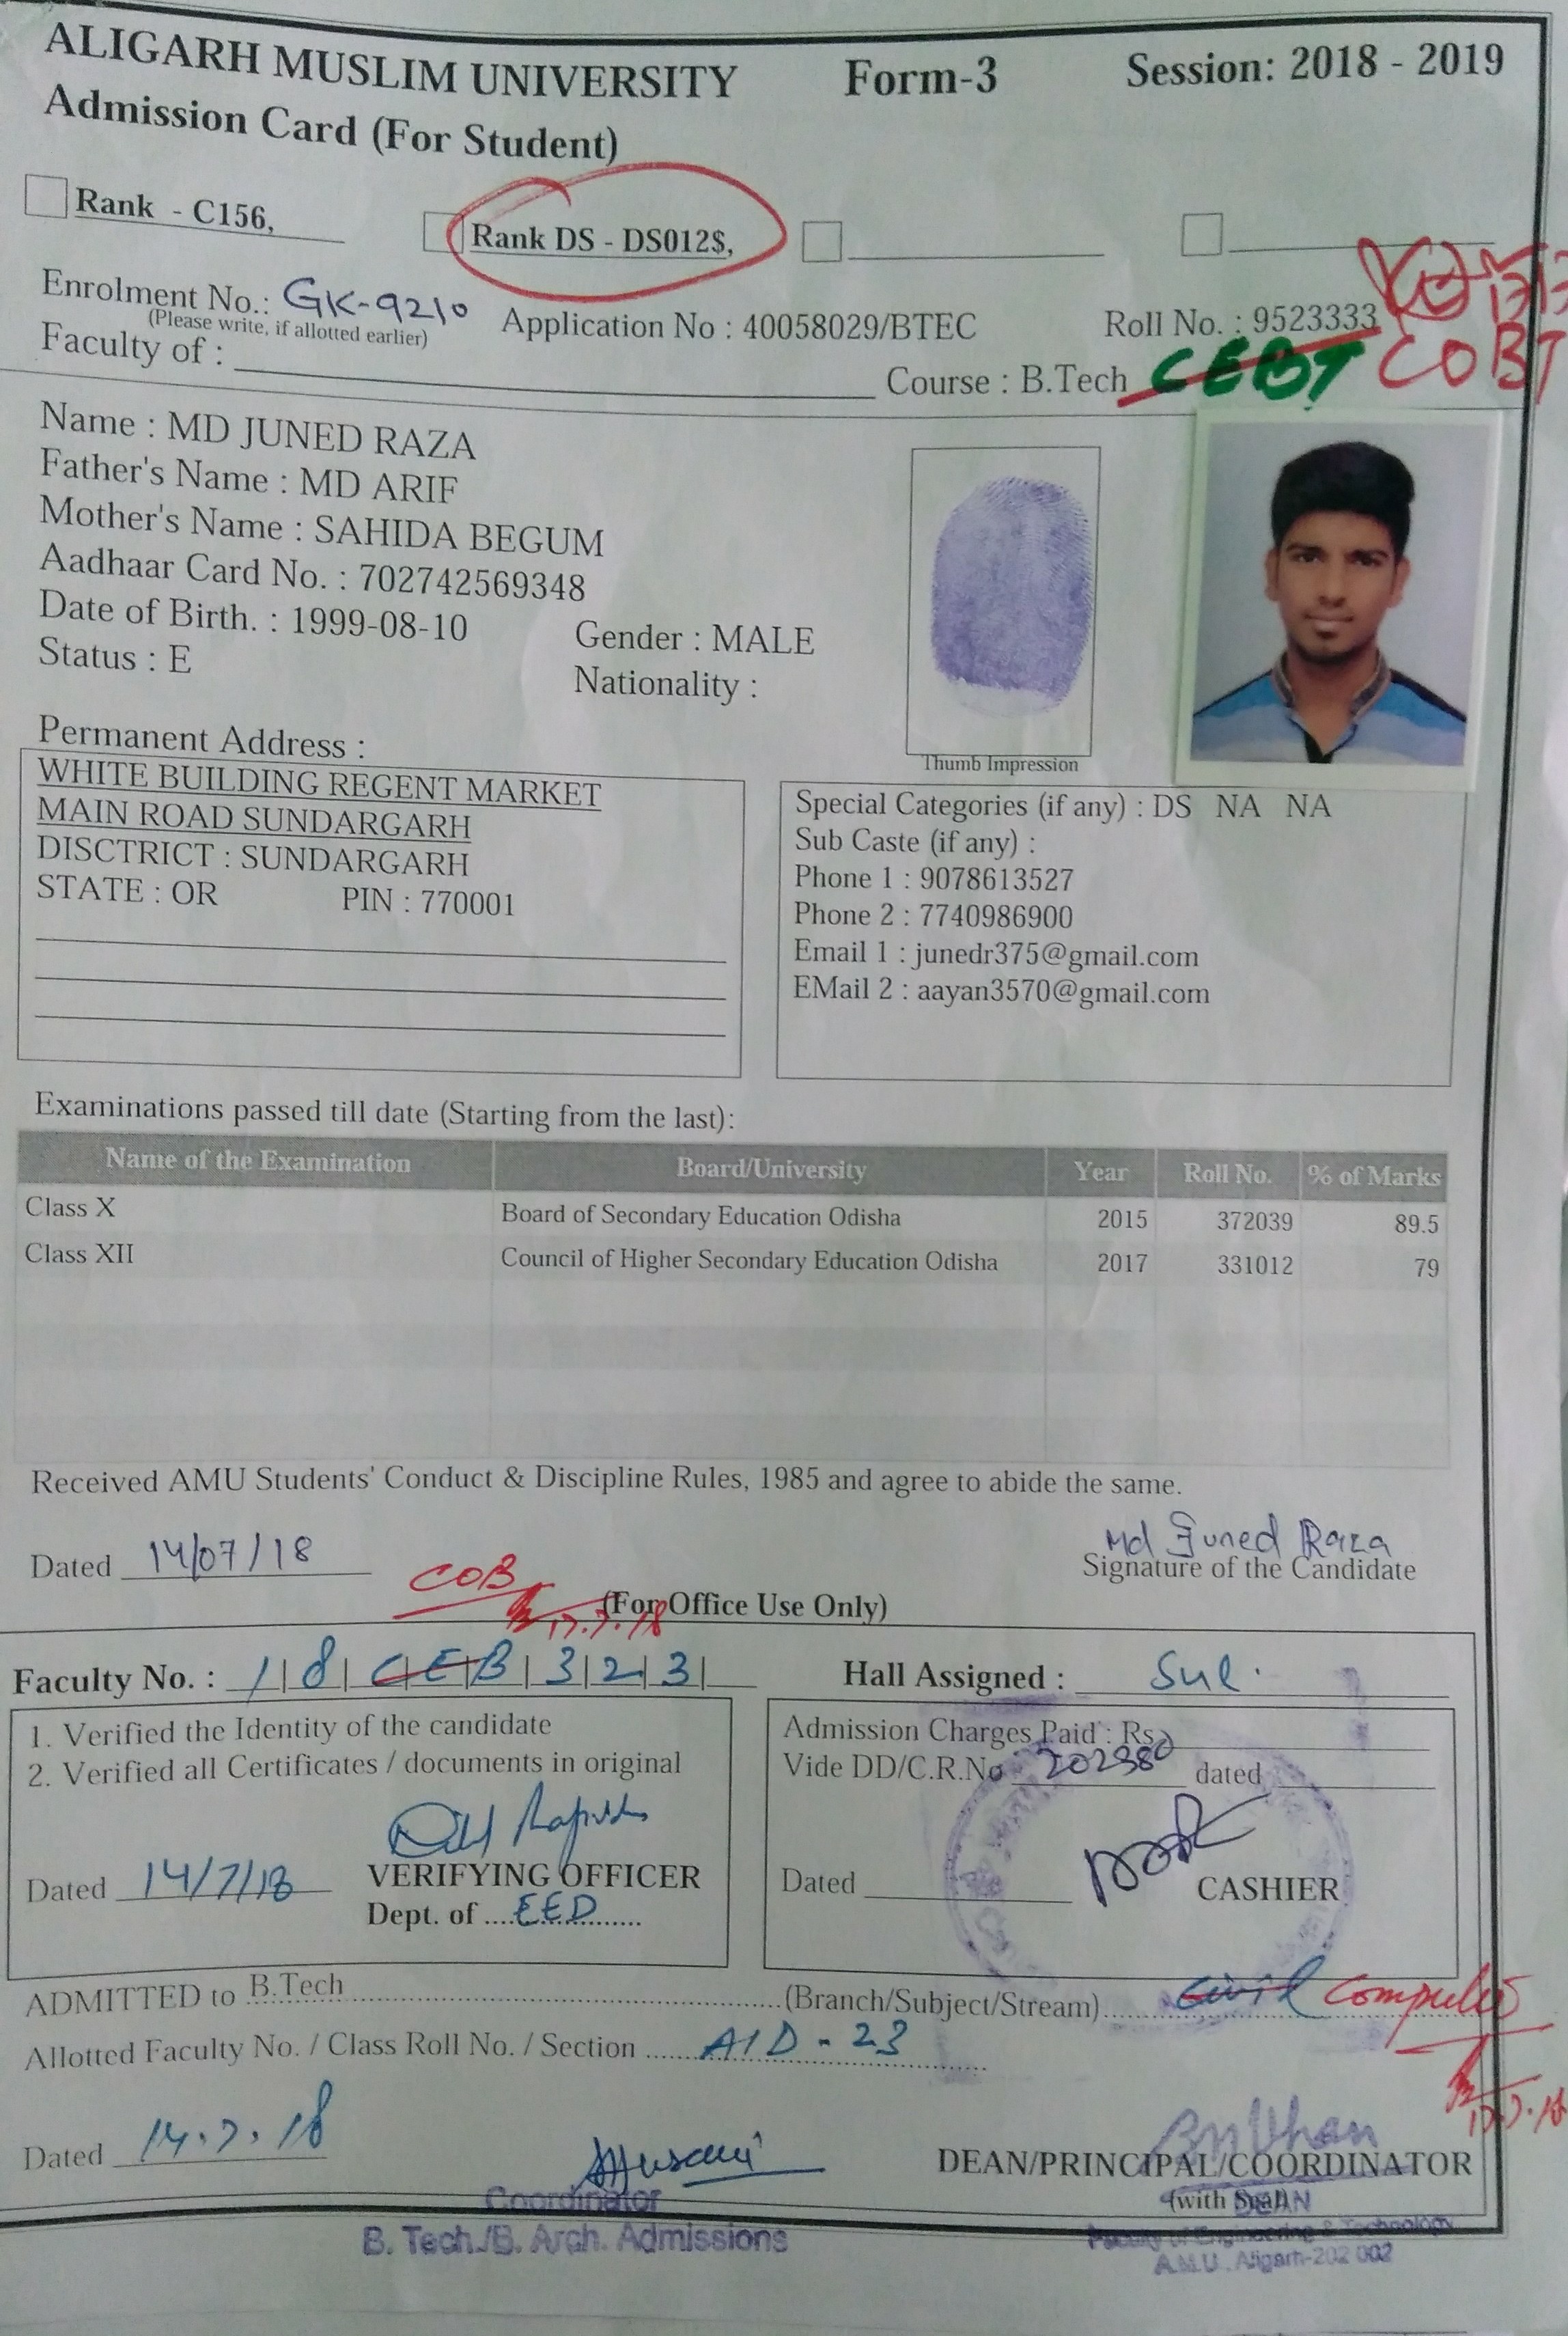 ALIGARH MUSLIM UNIVERSITY Form-3 Session: 2018 - 2019
Admission Card (For Student)
Rank - C156,
Rank DS - DS012$,
Enrolment No.: GK-9210
(Please write, if allotted earlier)
Application No : 40058029/BTEC Roll No. : 9523333
Faculty of :
Course : B.Tech CEBT COBT
Name : MD JUNED RAZA
Father's Name : MD ARIF
Mother's Name : SAHIDA BEGUM
Aadhaar Card No. : 702742569348
Date of Birth. : 1999-08-10 Gender : MALE
Status : E Nationality :
Thumb Impression
Permanent Address :
WHITE BUILDING REGENT MARKET
MAIN ROAD SUNDARGARH
DISCTRICT : SUNDARGARH
STATE : OR PIN : 770001
Special Categories (if any) : DS NA NA
Sub Caste (if any) :
Phone 1 : 9078613527
Phone 2 : 7740986900
Email 1 : junedr375@gmail.com
EMail 2 : aayan3570@gmail.com
Examinations passed till date (Starting from the last):
Name of the Examination Board/University Year Roll No. % of Marks
Class X Board of Secondary Education Odisha 2015 372039 89.5
Class XII Council of Higher Secondary Education Odisha 2017 331012 79
Received AMU Students' Conduct & Discipline Rules, 1985 and agree to abide the same.
Md Juned Raza
Dated 14/07/18 Signature of the Candidate
COB
(For Office Use Only)
17.7.18
Faculty No. : 1|8|C|E|B|3|2|3| Hall Assigned : Sul.
1. Verified the Identity of the candidate
2. Verified all Certificates / documents in original
Dated 14/7/18 VERIFYING OFFICER
Dept. of ....EED............
Admission Charges Paid : Rs.
Vide DD/C.R.No 202380 dated
Dated CASHIER
ADMITTED to B.Tech (Branch/Subject/Stream) Civil Computer
Allotted Faculty No. / Class Roll No. / Section A1D - 23
17.7.18
Dated 14.7.18
DEAN/PRINCIPAL/COORDINATOR
(with Seal)
Coordinator
B. Tech./B. Arch. Admissions
DEAN
Faculty of Engineering & Technology
A.M.U. Aligarh-202 002